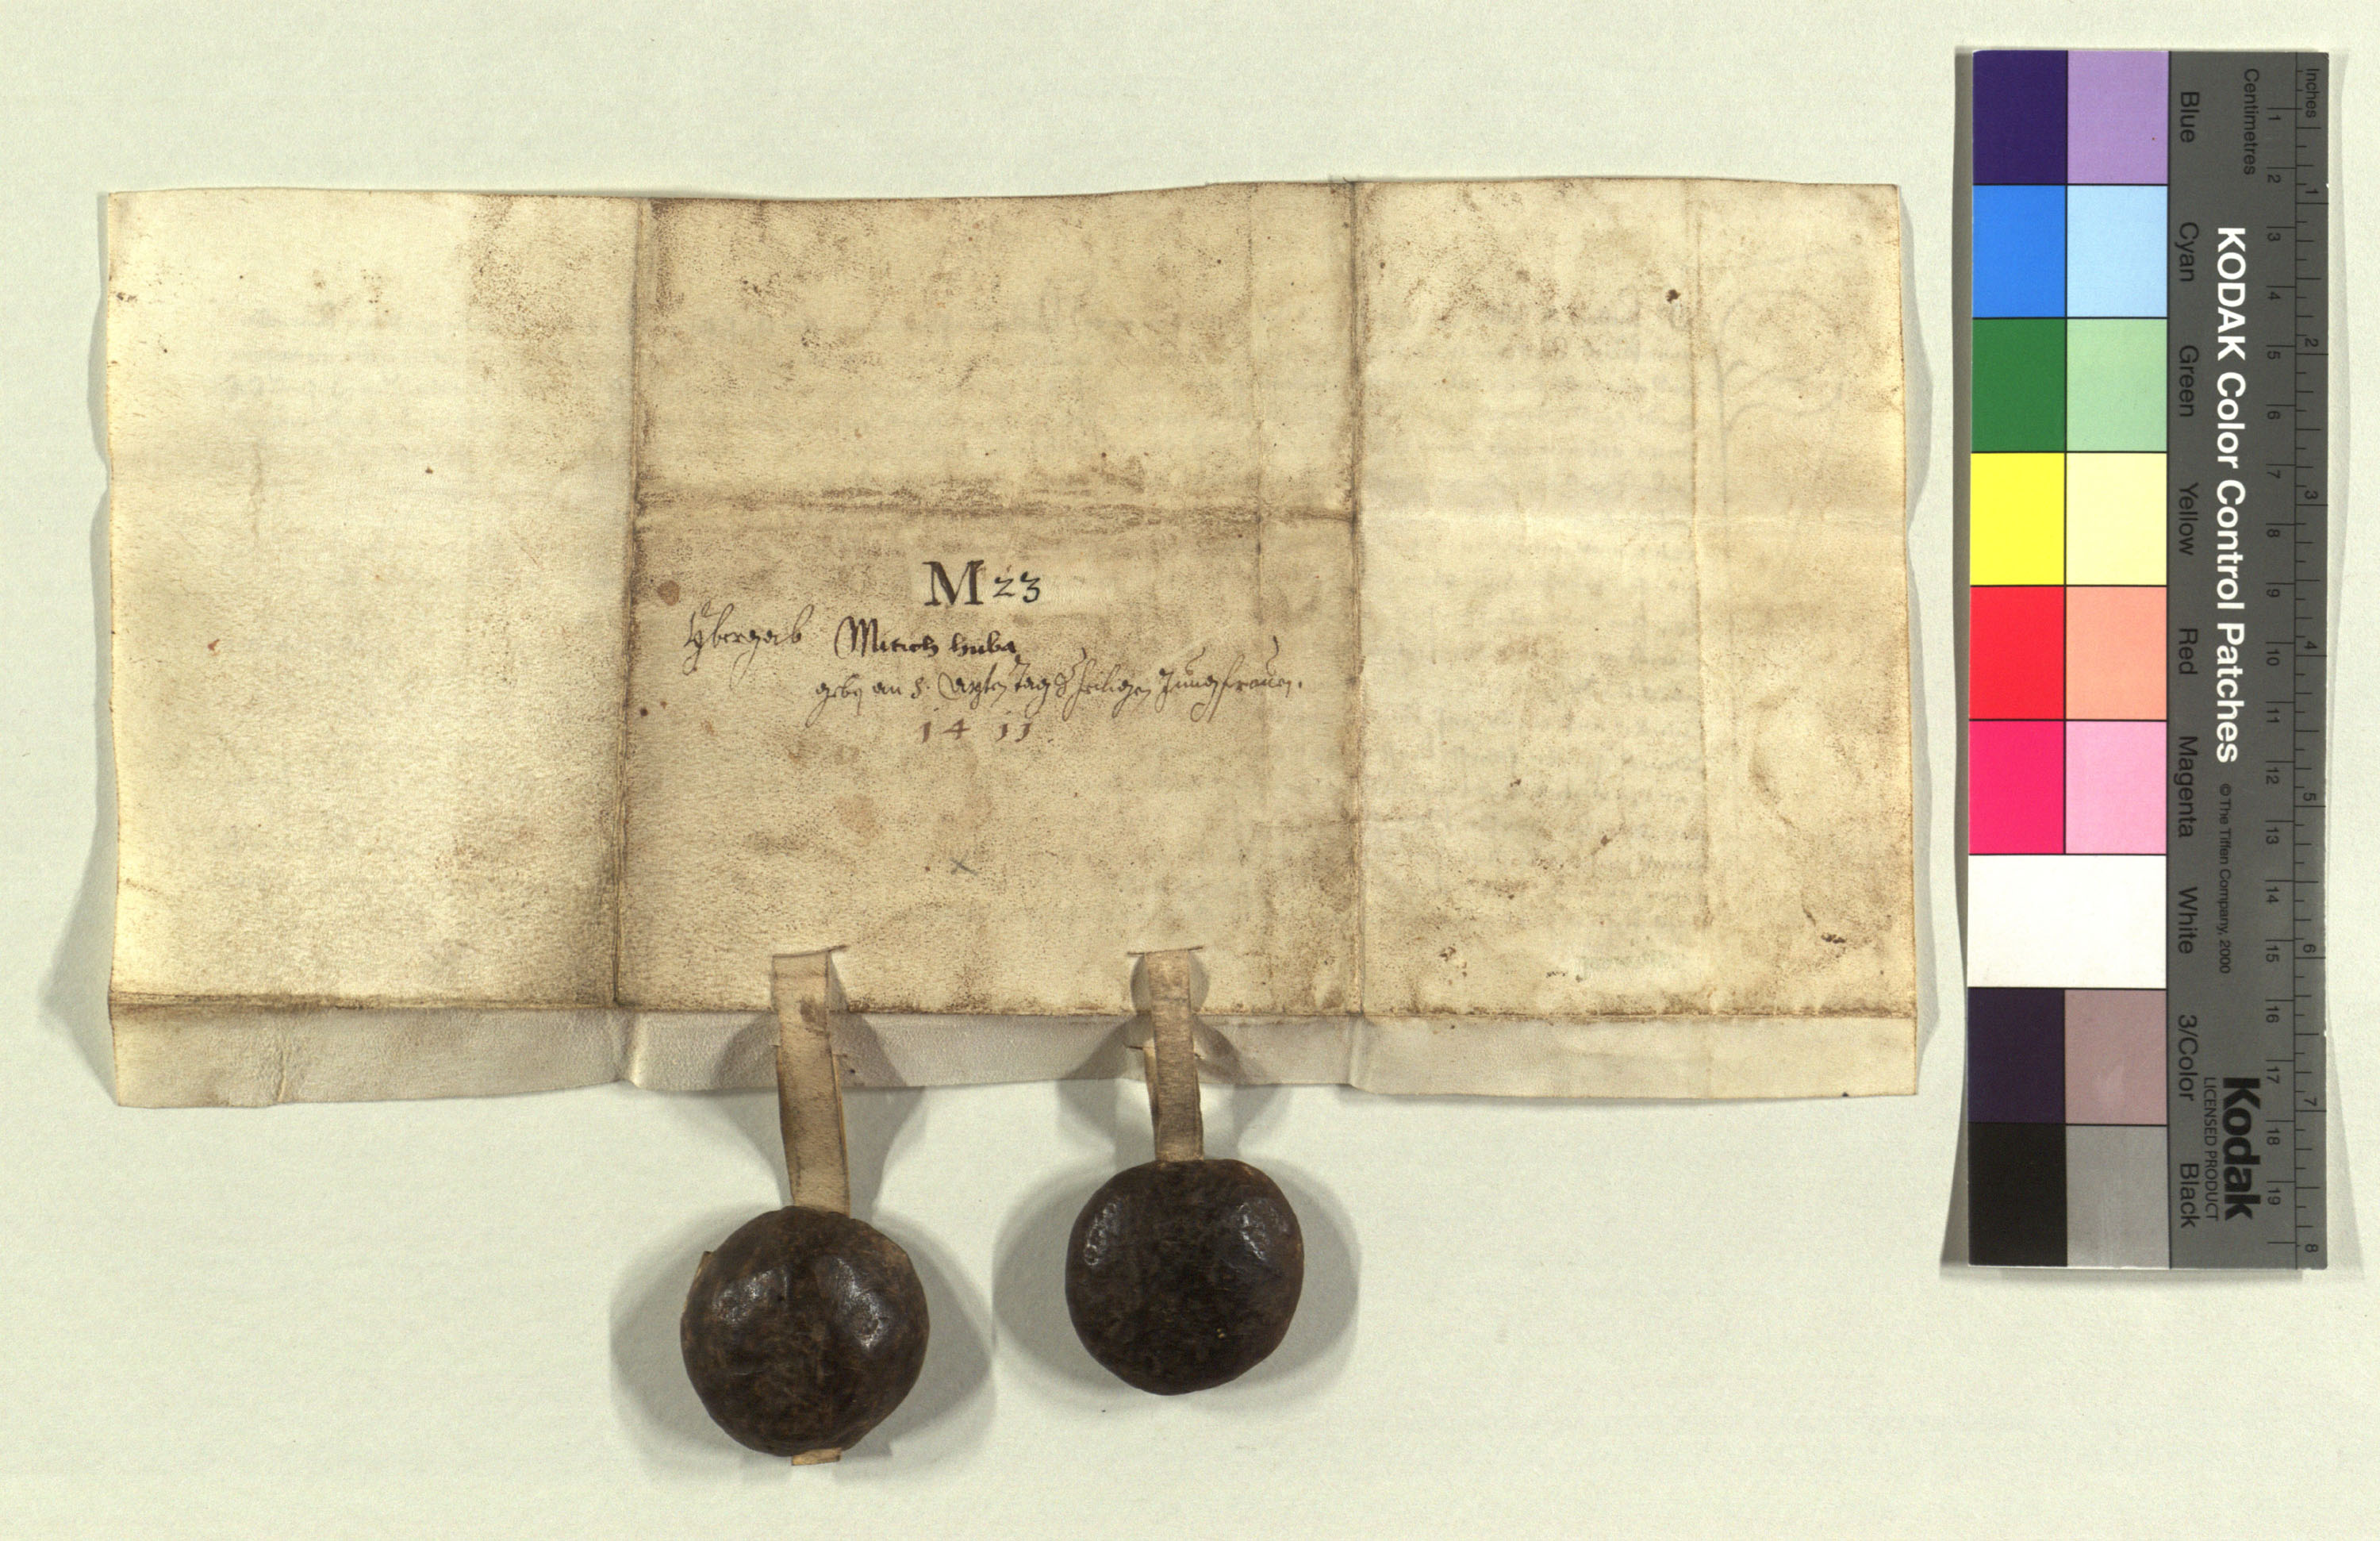 M 23
Ybergab Mitich huba
gebn an S. Agtn tag d heiligen Jungfrauen.
1411
Inches
Centimetres
1 2 3 4 5 6 7 8
1 2 3 4 5 6 7 8 9 10 11 12 13 14 15 16 17 18 19
KODAK Color Control Patches ©The Tiffen Company, 2000
Kodak
LICENSED PRODUCT
Blue Cyan Green Yellow Red Magenta White 3/Color Black